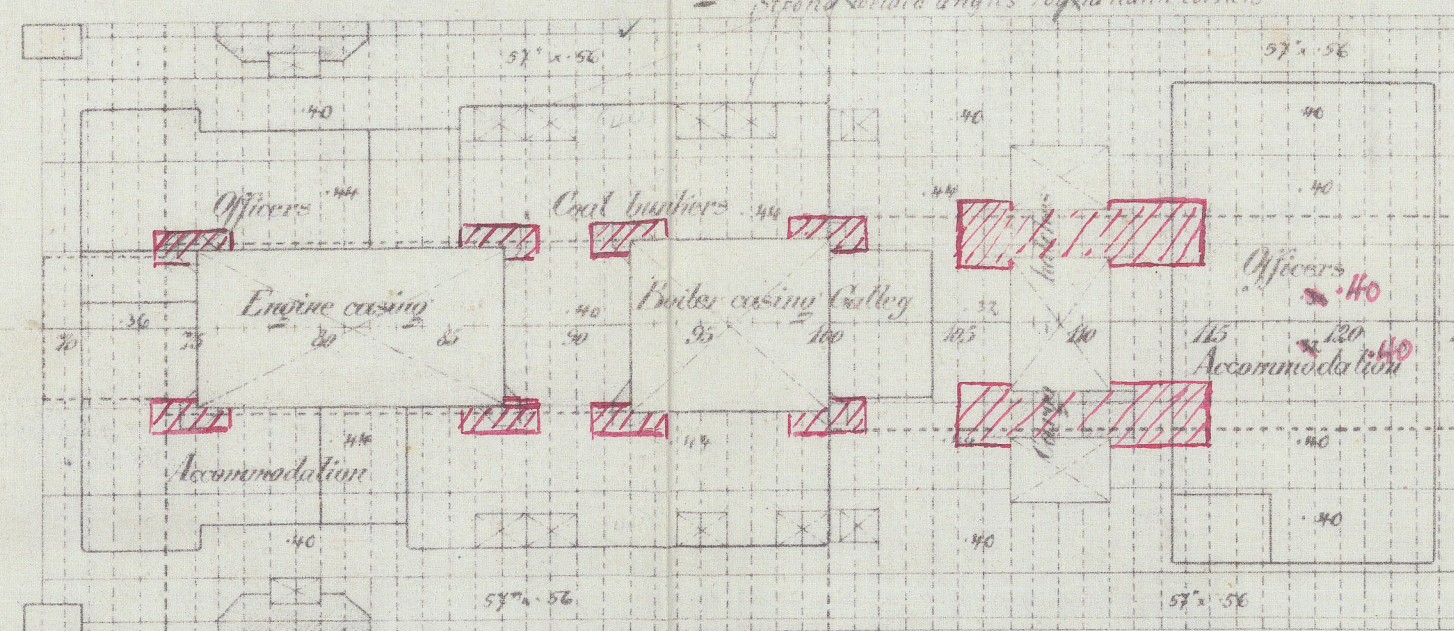 57" x ·56
57" x ·56
·40
·40
40
·40
Officers
·44
Coal bunkers
·44
·44
Officers
·40
Engine casing
·40
Boiler casing
Galley
·32
·36
70
75
80
85
90
95
100
105
110
115
120
·40
Accommodation
·44
·44
·40
Accommodation
·40
·40
·40
57" x ·56
57" x ·56